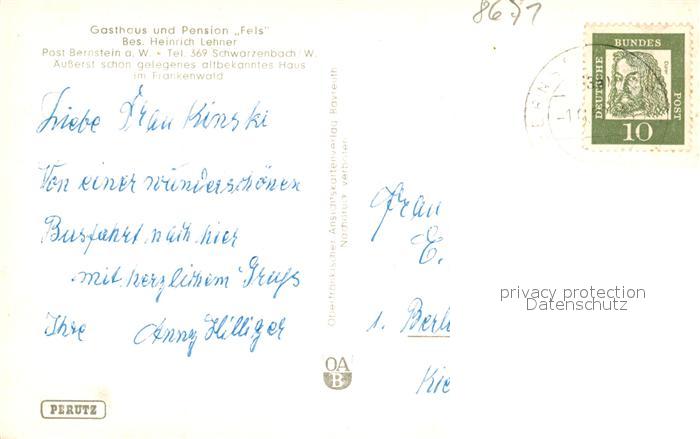 Gasthaus und Pension „Fels"
Bes. Heinrich Lehner
Post Bernstein a. W. • Tel. 369 Schwarzenbach/W.
Äußerst schön gelegenes altbekanntes Haus
im Frankenwald
Liebe Frau Kinski
Von einer wunderschönen
Busfahrt nach hier
mit herzlichem Gruß
Ihre Anny Hilliger
PERUTZ
Oberfränkischer Ansichtskartenverlag Bayreuth
Nachdruck verboten
OA
B
DEUTSCHE
BUNDES
POST
10
Frau
E.
1. Berl
Kie
privacy protection
Datenschutz